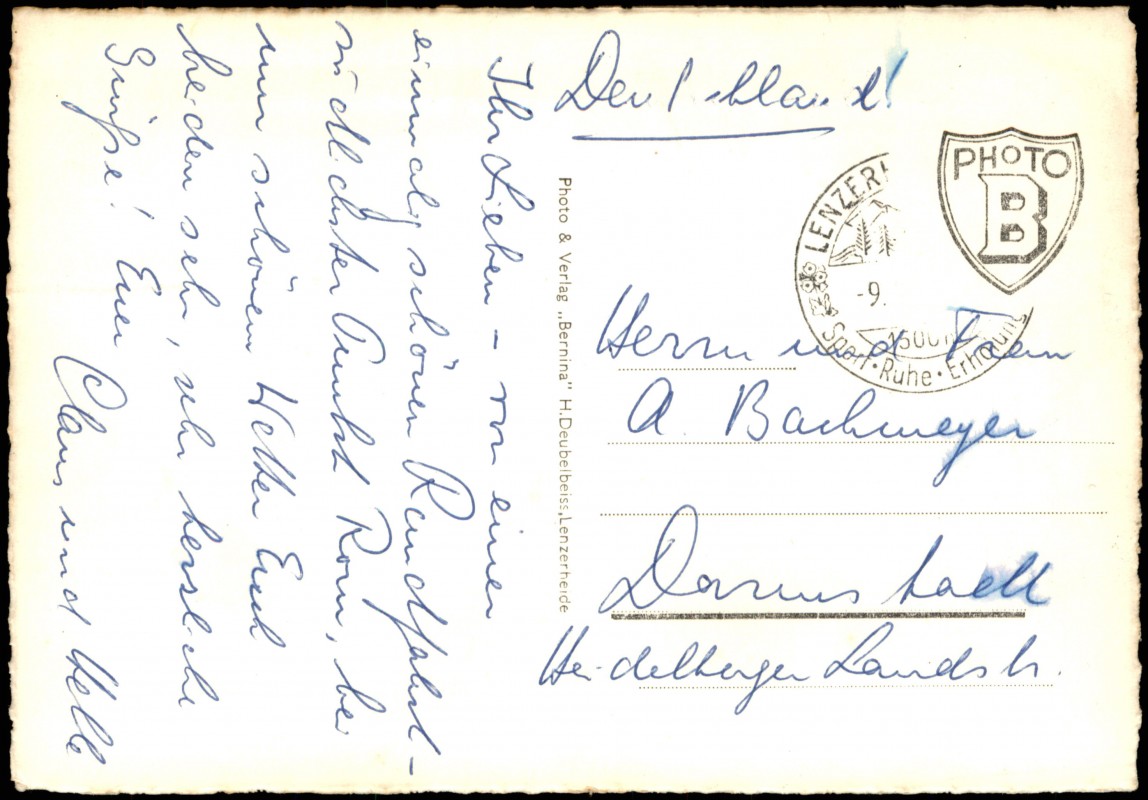 Ihr Lieben – von einer
einmalig schönen Rundfahrt –
südlichster Punkt Rom, bei
nun schönem Wetter Euch
beiden sehr, sehr herzliche
Grüße! Euer
Claus und Helle
Photo & Verlag „Bernina" H. Deubelbeiss, Lenzerheide
Deutschland!
PHOTO
B
LENZERH
-9.
1500
Sport · Ruhe · Erholung
Herrn und Frau
A. Bachmeyer
Darmstadt
Heidelberger Landstr.